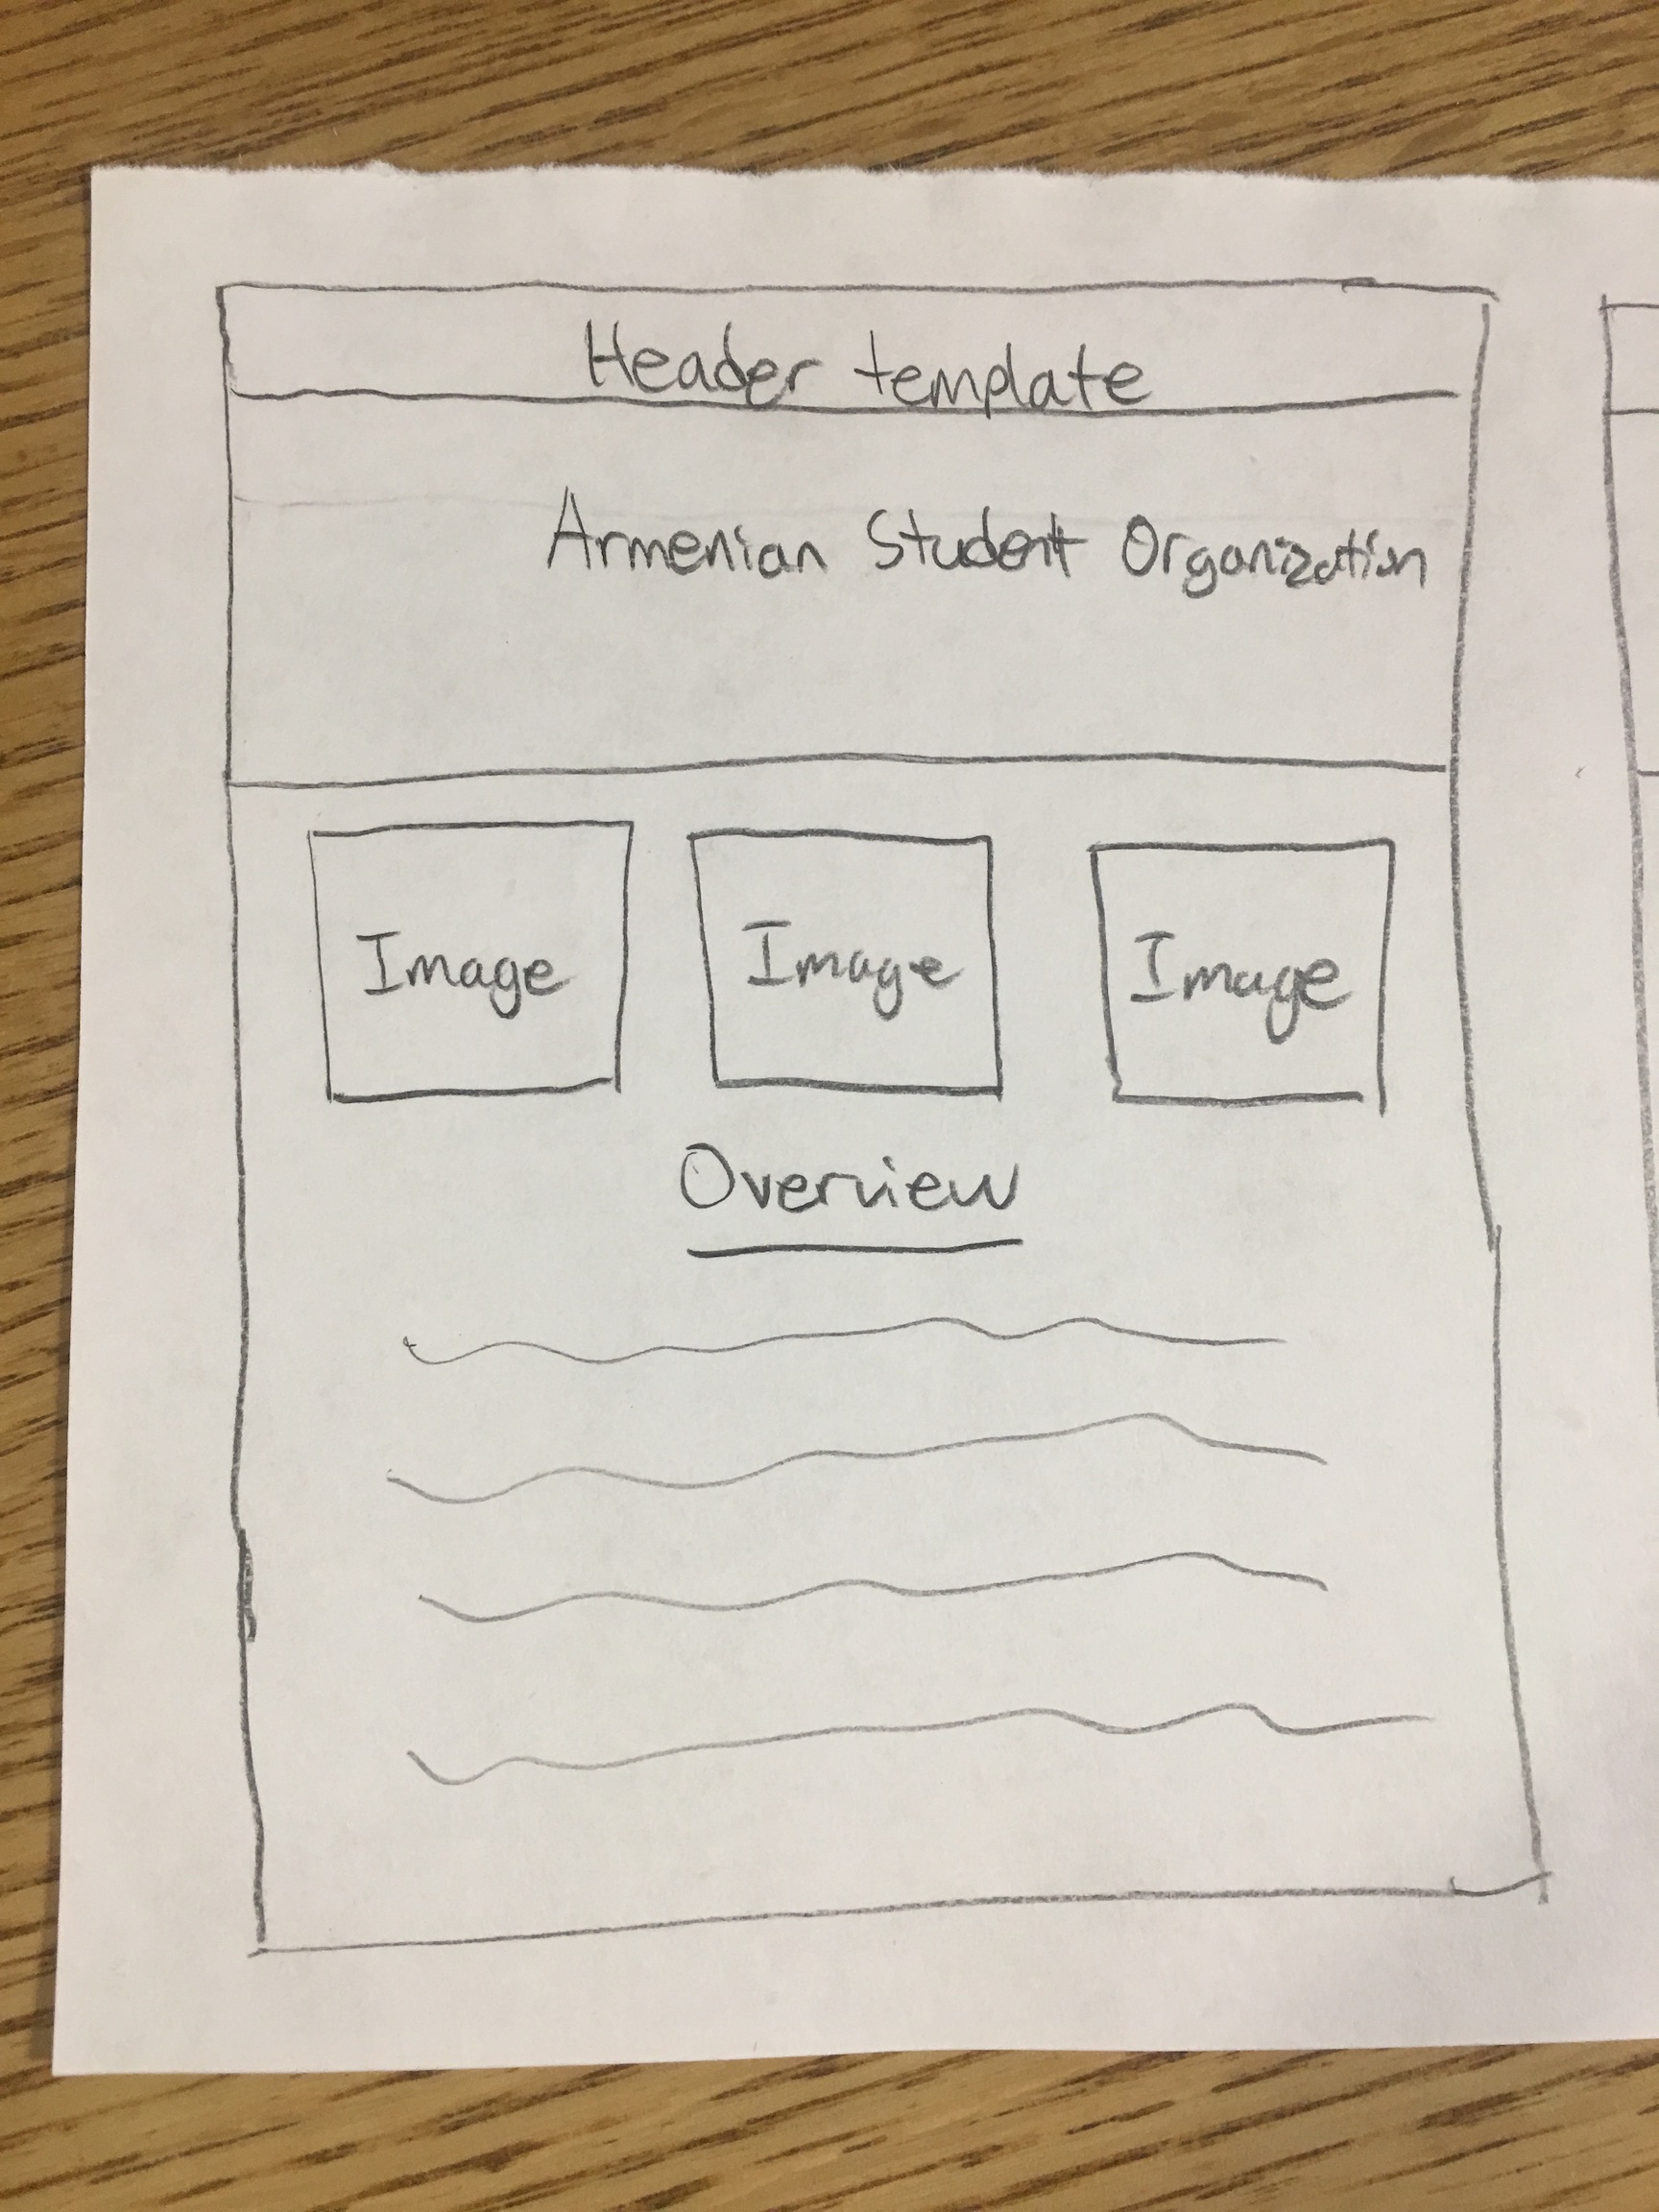 Header template
Armenian Student Organization
Image Image Image
Overview